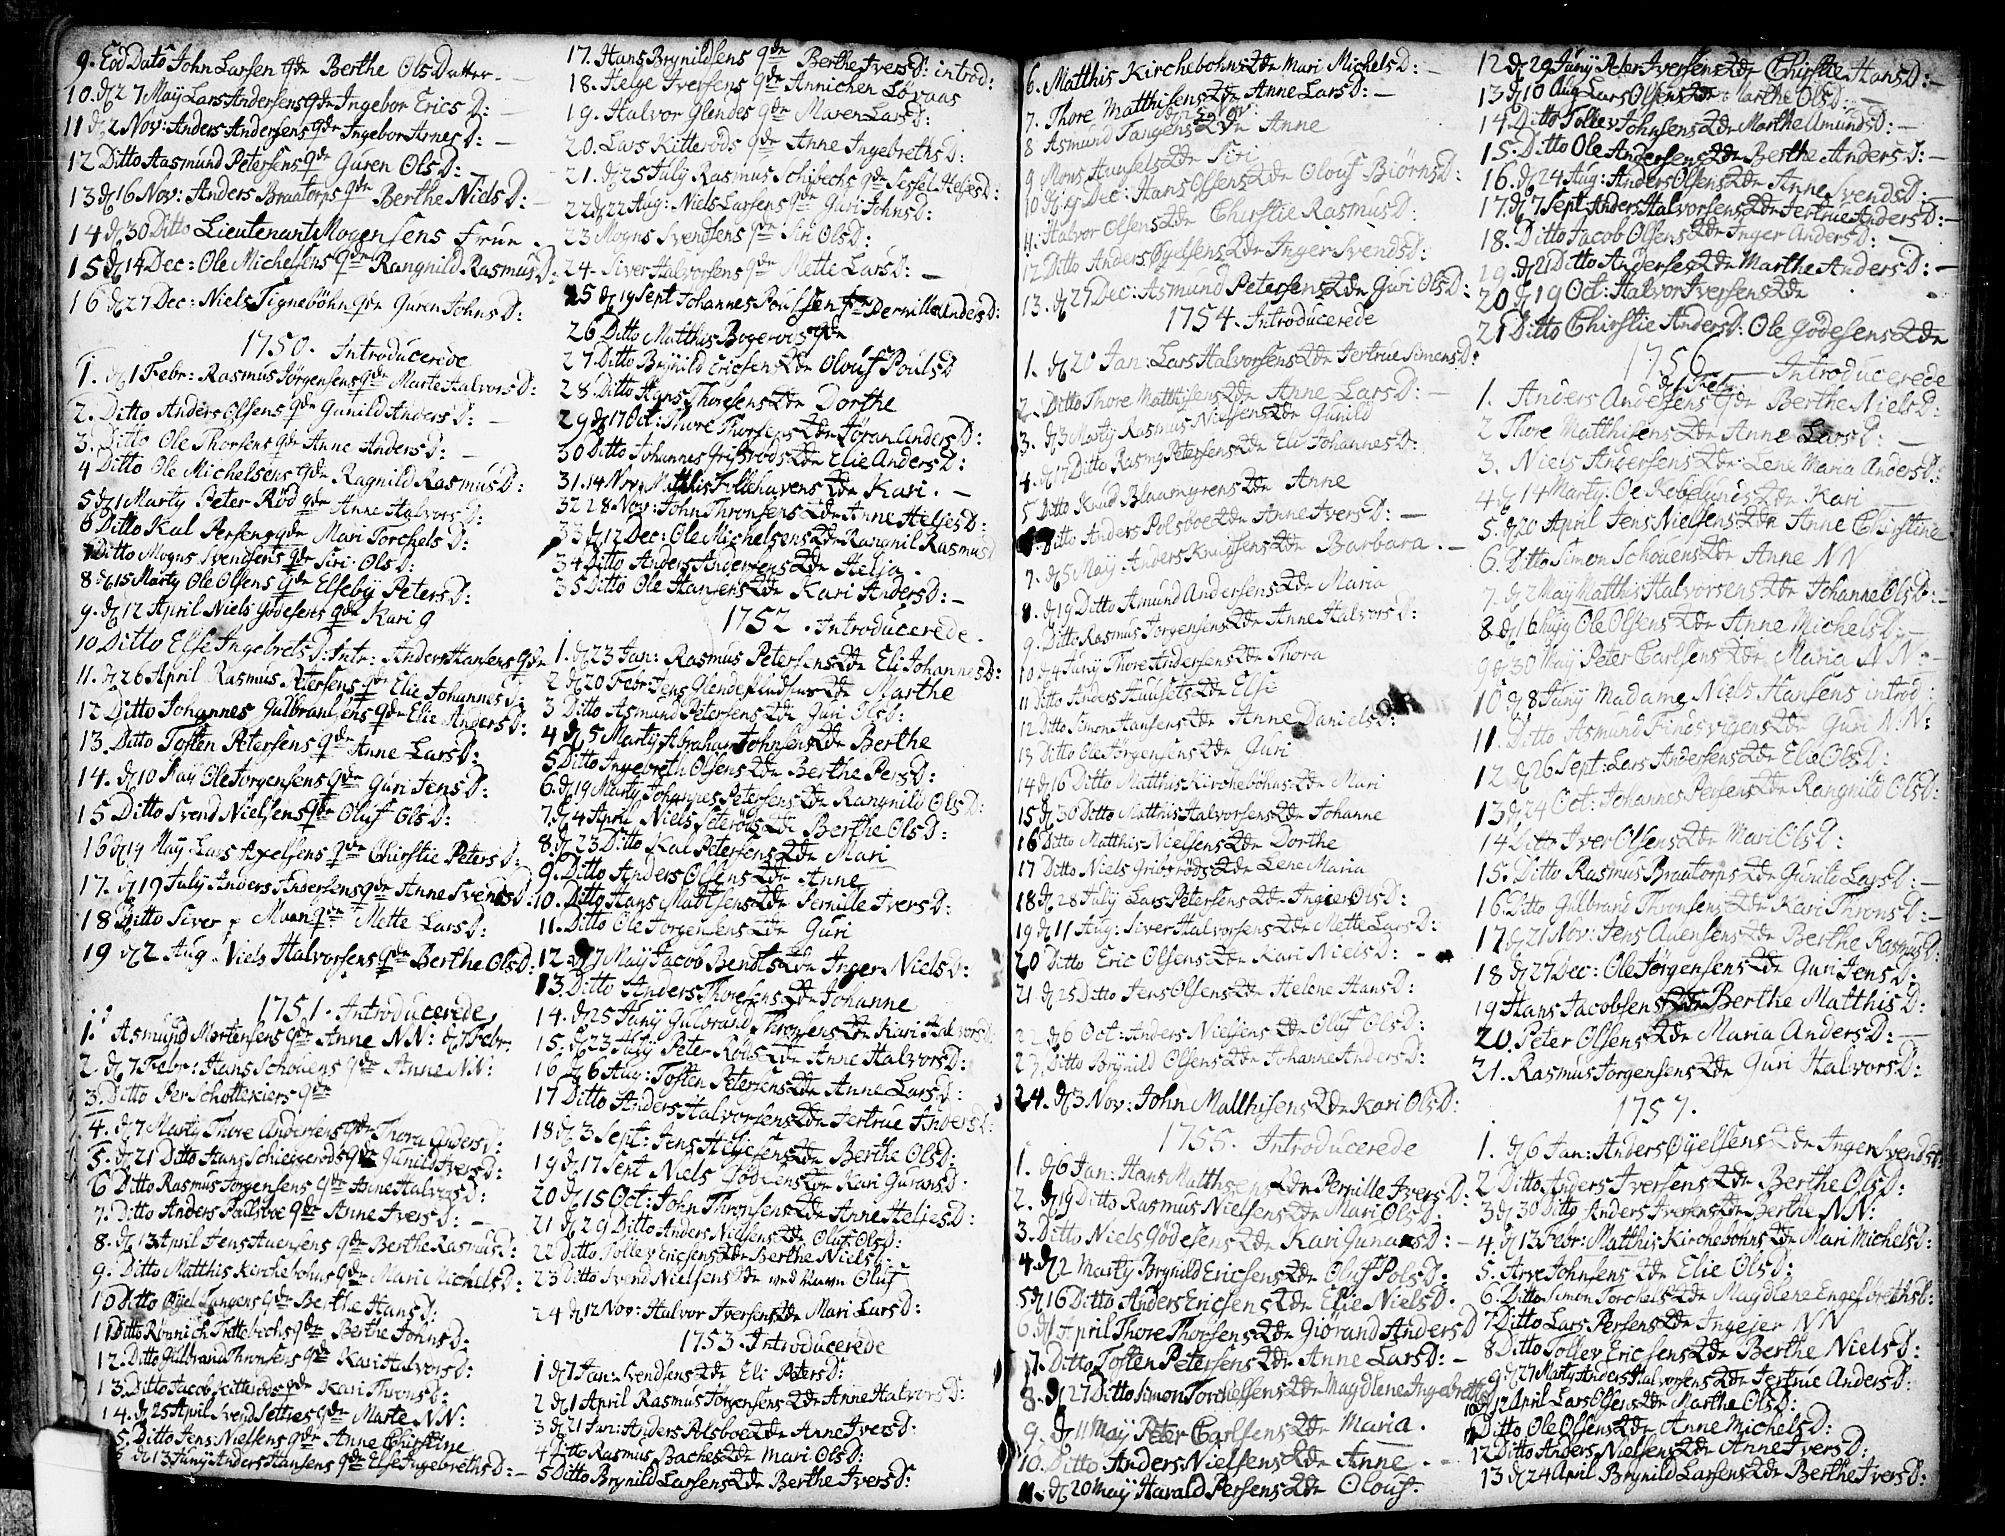 9. Eod Dato John Larsens qde Berthe Ols Datter
10. d 27 Maÿ Lars Andersens qde Ingebor Erics D:
11 d 2 Nov: Anders Andersens qde Ingebor Arnes D:
12. Ditto Aasmund Petersens qde Guren Ols D:
13 d 16 Nov: Anders Braatorps qde Berthe Niels D:
14 d 30 Ditto Lieutenant Mogensens Frue
15 d 14 Dec: Ole Michelsens qde Rangnild Rasmus D:
16 d 27 Dec: Niels Tignebøhn qde Guren Johns D:
1750. Introducerede
1. d 1 Febr: Rasmus Jørgensens qde Marte Halvors D:
2. Ditto Anders Olsens qde Gunild Anders D:
3. Ditto Ole Thorsens qde Anne Anders D:
4 Ditto Ole Michelsens qde Ragnild Rasmus D:
5 d 1 Marty Peter Rød qde Anne Halvors D:
6 Ditto Kal Persens qde Mari Torchels D:
7 Ditto Mogns Svendsens qde Siri Ols D:
8 d 15 Marty Ole Olsens qde Elseby Peters D:
9. d 12 April Niels Godesens qde Kari G
10 Ditto Else Ingebrets D: Intr: Anders Hansens qde
11. d 26 April Rasmus Petersens qde Elie Johannes D:
12 Ditto Johannes Gulbransens qde Elie Anders D:
13. Ditto Tosten Petersens qde Anne Lars D:
14. d 10 Maÿ Ole Jorgensens qde Guri Jens D:
15 Ditto Svend Nielsens qde Oluf Ols D:
16 d 19 Maÿ Lars Axelsens qde Chirstie Peters D:
17. d 19 July Anders Andersens qde Anne Svends D:
18 Ditto Siver Moen qde Mette Lars D:
19 d 2 Aug Niels Halvorsens qde Berthe Ols D:
1751. Introducerede
1. Asmund Mortensens qde Anne NN: d 7 Febr.
2. d 7 Febr: Hans Schouens qde Anne NN:
3. Ditto Per Schottekiers qde
4. d 7 Marty Thore Andersens qde Thora Anders D:
5. d 21 Ditto Hans qde Gunild Ivers D:
6 Ditto Rasmus Jorgensens qde Anne Halvors D:
7. Ditto Anders Polsboe qde Anne Ivers D:
8. d 13 April Jens Auensens qde Berthe Rasmus D:
9. Ditto Matthis Kirchebohns qde Mari Michels D:
10 Ditto Øÿel Tangens qde Berthe Hans D:
11 Ditto Rønnich qde Berthe Johns D:
12. Ditto Gulbrand Thronsens qde Kari Halvors D:
13. Ditto Jacob Kitterods qde Kari Throns D:
14. d 25 April Svend Settres qde Marte NN:
15. Ditto Jens Nielsens qde Anne Chirstine
d 13 Juny Anders Hansens qde Else Ingebreths D:
17. Hans Brynildsens qde Berthe Ivers D: introd:
18. Helge Iversens qde Annichen Løvaas
19. Halvor Glendes qde Maren Lars D:
20. Lars Kitterods qde Anne Ingebreths D:
21. d 25 July Rasmus Schibechs qde Sessel Heljes D:
22 d 22 Aug: Niels Larsens qde Guri Johns D:
23 Mogns Svendsens qde Siri Ols D:
24. Siver Halvorsens qde Mette Lars D:
25 d 19 Sept Johannes Poulsens qde Pernille Anders D:
26 Ditto Matthis qde
27 Ditto Brynild Ericsen 2de Olouf Pouls D
28. Ditto Hans Thoresens 2de Dorthe
29 d 17 Oct: Thore Thorsens 2de Jøran Anders D:
30 Ditto Johannes Gris røds 2de Elie Anders D:
31. 14 Nov: Matthis Fillehavens 2de Kari.
32 28 Nov: John Thronsens 2de Anne Heljes D:
33 d 12 Dec: Ole Michelsens 2de Rangnil Rasmus
34 Ditto Anders Andersens 2de Helja.
35 Ditto Ole Hansens 2de Kari Anders D:
1752. Introducerede.
1. d 23 Jan: Rasmus Petersens 2de Eli Johannes D:
2 d 20 Febr: Jens 2de Marthe
3 Ditto Asmund Petersens 2de Guri Ols D:
4 d 5 Marty Abraham Johnsens 2de Berthe
5 Ditto Ingebreth Olsens 2de Berthe Pers D:
6. d 19 Marty Johannes Petersens 2de Rangnild Ols D:
7. d 4 April Niels Seterøds 2de Berthe Ols D:
8. d 23 Ditto Kal Petersens 2de Mari
9. Ditto Anders Olsens 2de Anne
10. Ditto Hans Mathisens 2de Pernille Ivers D:
11. Ditto Ole Jorgensens 2de Guri
12. d 7 Maÿ Jacob Bendts 2de Inger Niels D:
13. Ditto Anders Thoresens 2de Johanne
14. d 25 Juny Gulbrand Thronsens 2de Kari Halvors D:
15. d 23 July Peter Røds 2de Anne Halvors D:
16 d 6 Aug: Tosten Petersens 2de Anne Lars D:
17 Ditto Anders Halvorsens 2de Jertrue Anders D:
18 d 3 Sept: Jens Heljesens 2de Berthe Ols D:
19 d 17 Sept Niels Gødesens 2de Kari Gunars D:
20 d 15 Oct: John Thronsens 2de Anne Heljes D:
21 d 29 Ditto Anders Nielsens 2de Oluf Ols D:
22 Ditto Tollev Ericsens 2de Berthe Niels D:
23 Ditto Svend Nielsens 2de ved Navn Oluf
24 d 12 Nov: Halvor Iversens 2de Mari Lars D:
1753. Introducerede
1 d 7 Jan: Svendsens 2de Eli Peters D:
2 d 1 April Rasmus Jørgensens 2de Anne Halvors D:
3 d 21 Jun: Anders Polsboe 2de Anne Ivers D:
4 Ditto Rasmus Baches 2de Mari Ols D:
5 Ditto Brynild Larsens 2de Berthe Ivers D:
6. Matthis Kirchebohns 2de Mari Michels D:
7. Thore Matthisens 2de Anne Lars D:
8 Asmund Tangens 2de Anne
9 Mons Huusels 2de Siri
10 d 9 Dec: Hans Olsens 2de Olouf Biørns D:
11. Halvor Olsens 2de Chirstie Rasmus D:
12 Ditto Anders Øyelsens 2de Inger Svends D:
13. d 27 Dec: Asmund Petersens 2de Guri Ols D:
1754. Introducerede
1. d 20 Jan: Lars Halvorsens 2de Jertrue Simens D:
2. Ditto Thore Matthisens 2de Anne Lars D:
3. d 3 Marty Rasmus Nielsens 2de Gunild
4. d 17 Ditto Rasmg Petersens 2de Eli Johannes D:
5 Ditto Knud Blaamyrens 2de Anne
6. Ditto Anders Polsboe 2de Anne Ivers D:
7. d 5 Maÿ Anders Knudsens 2de Barbara.
8. d 19 Ditto Amund Andersens 2de Maria
9. Ditto Rasmus Jorgensens 2de Anne Halvors D:
10 d 4 Juny Thore Andersens 2de Thora
11 Ditto Anders Huusets 2de Else
12 Ditto Simon Hansens 2de Anne Daniels D:
13 Ditto Ole Jorgensens 2de Guri
14 d 16 Ditto Matthis Kirchebohns 2de Mari
15 d 30 Ditto Matthis Halvorsens 2de Johanne
16 Ditto Matthis Nielsens 2de Dorthe
17 Ditto Niels Grisrøds 2de Lene Maria
18 d 28 July Lars Petersens 2de Ingier Ols D:
19 d 11 Aug: Siver Halvorsens 2de Mette Lars D:
20 Ditto Eric Olsens 2de Kari Niels D:
21 d 25 Ditto Jens Olsens 2de Helene Hans D:
22 d 6 Oct: Anders Nielsens 2de Oluf Ols D:
23. Ditto Brynild Olsens 2de Johanne Anders D:
24. d 3 Nov: John Matthisens 2de Kari Ols D:
1755. Introducerede
1. d 6 Jan: Hans Matthsens 2de Pernille Ivers D:
2. d 19 Ditto Rasmus Nielsens 2de Mari Ols D.
3. Ditto Niels Gödesens 2de Kari Gunars D:
4. d 2 Marty Brynild Ericsens 2de Oluf Pols D:
5 d 16 Ditto Anders Ericsens 2de Elie Niels D.
6 d 1 April Thore Thorsens 2de Giørand Anders D
7. Ditto Tosten Petersens 2de Anne Lars D:
8. d 27 Ditto Simon Torchelsens 2de Magdlene Ingebreths
9. d 11 Maÿ Peter Carlsens 2de Maria.
10. Ditto Anders Nielsens 2de Anne
11. d 20 Maÿ Harald Persens 2de Olouf.
12 d 29 Juny Peter Iversens 2de Chirstie Hans D:
13 d 10 Aug Lars Olsens 2de Marthe Ols D:
14 Ditto Tollev Johnsens 2de Marthe Amunds D:
15. Ditto Ole Andersens 2de Berthe Anders D:
16. d 24 Aug: Anders Olsens 2de Anne Svends D:
17. d 7 Sept Anders Halvorsens 2de Jertrue Anders D:
18. Ditto Jacob Olsens 2de Inger Anders D:
19. d 21 Ditto Andersens 2de Marthe Anders D:
20 d 19 Oct: Halvor Iversens 2de
21 Ditto Chirstie Anders D: Ole Godesens 2de
1756 Introducerede
1. Anders Andersens qde Berthe Niels D:
2 Thore Matthisens 2de Anne Lars D:
3. Niels Andersens 2de Lene Maria Anders D:
4 d 14 Marty: Ole 2de Kari
5. d 20 April Jens Nielsens 2de Anne Chirstine
6. Ditto Simon Schouens 2de Anne NN
7. d 2 May Matthis Halvorsens 2de Johanne Ols D:
8 d 16 huig Ole Olsens 2de Anne Michels D.
9 d 30 May Peter Carlsens 2de Maria NN:
10 d 8 Juny Madame Niels Hansens introd:
11. Ditto Asmund Findsvigens 2de Guri NN:
12 d 26 Sept: Lars Andersens 2de Elie Ols D:
13 d 24 Oct: Johannes Persens 2de Rangnild Ols D:
14 Ditto Iver Olsens 2de Mari Ols D:
15. Ditto Rasmus Braatorps 2de Gunild Lars D:
16. Ditto Gulbrand Thronsens 2de Kari Throns D:
17 d 21 Nov: Jens Auensens 2de Berthe Rasmus D:
18 d 27 Dec: Ole Jørgensens 2de Guri Jens D:
19 Hans Jacobsens 2de Berthe Matthis D:
20. Peter Olsens 2de Maria Anders D:
21. Rasmus Jorgensens 2de Guri Halvors D:
1757.
1. d 6 Jan: Anders Øÿelsens 2de Inger Svends D:
2 Ditto Anders Iversens 2de Berthe Ols D:
3 d 30 Ditto Anders Iversens 2de Berthe NN:
4. d 13 Febr: Matthis Kirchebohns 2de Mari Michels D:
5. Arve Johnsens 2de Elie Ols D:
6. Ditto Simon Torchels 2de Magdlene Engelbreths D:
7 Ditto Lars Persens 2de Ingejer NN
8 Ditto Tollev Ericsens 2de Berthe Niels D:
9 d 27 Marty Anders Halvorsens 2de Jertrue Anders D:
10 d 12 April Lars Olsens 2de Marthe Ols D:
11 Ditto Ole Olsens 2de Anne Michels D:
12 Ditto Anders Nielsens 2de Anne Ivers D:
13 d 24 April Brynild Larsens 2de Berthe Ivers D: